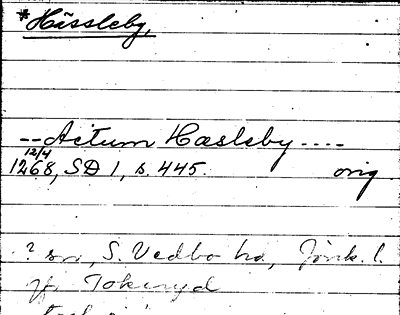 *Hässleby,
-- Actum Hæsleby ----
12/4
1268, SD 1, s. 445. orig
? sn, S. Vedbo hd, Jönk. l.
jfr Tokeryd